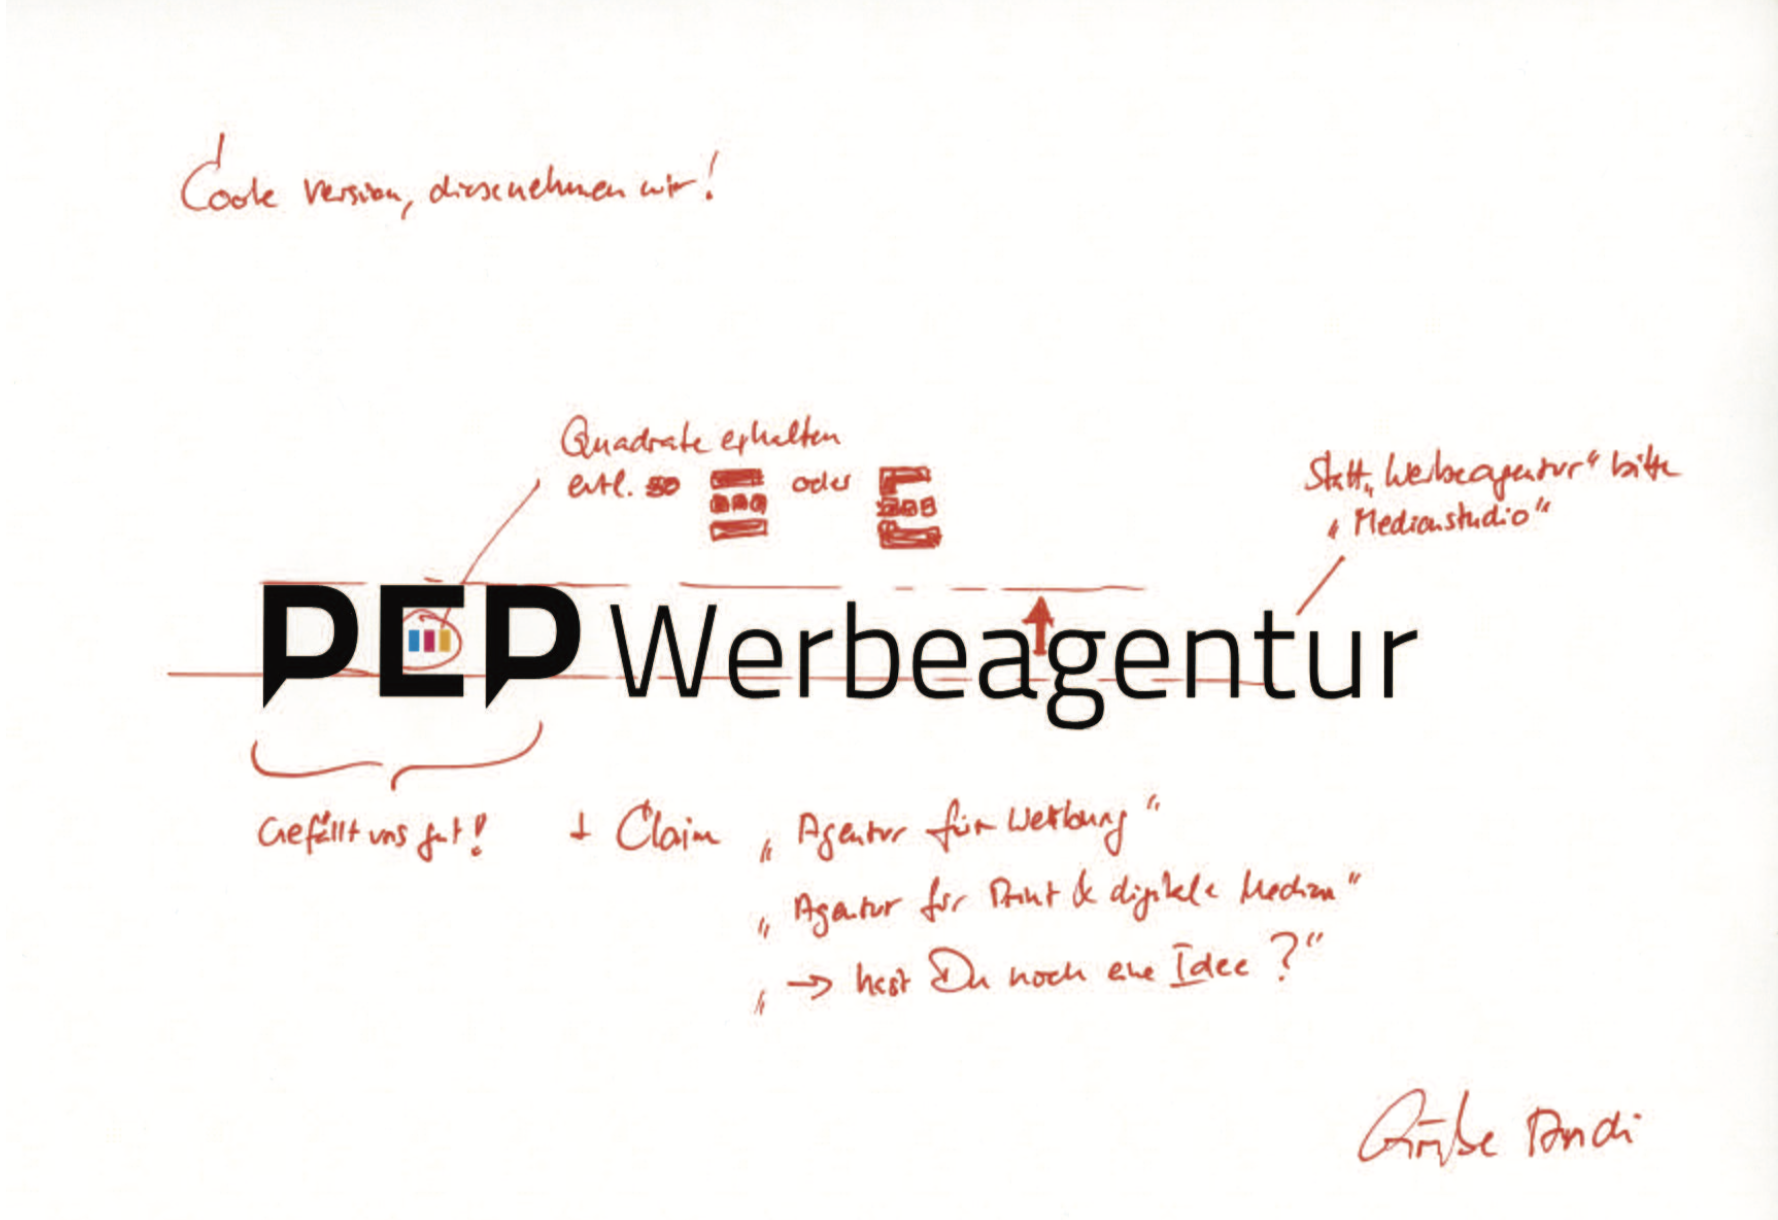 Coole Version, diese nehmen wir!
Quadrate erhalten
evtl. so oder
Statt „Werbeagentur“ bitte
„Medienstudio“
PEP Werbeagentur
Gefällt uns gut! + Claim „Agentur für Werbung“
„Agentur für Print & digitale Medien“
„→ hast Du noch eine Idee?“
Grüße Andi